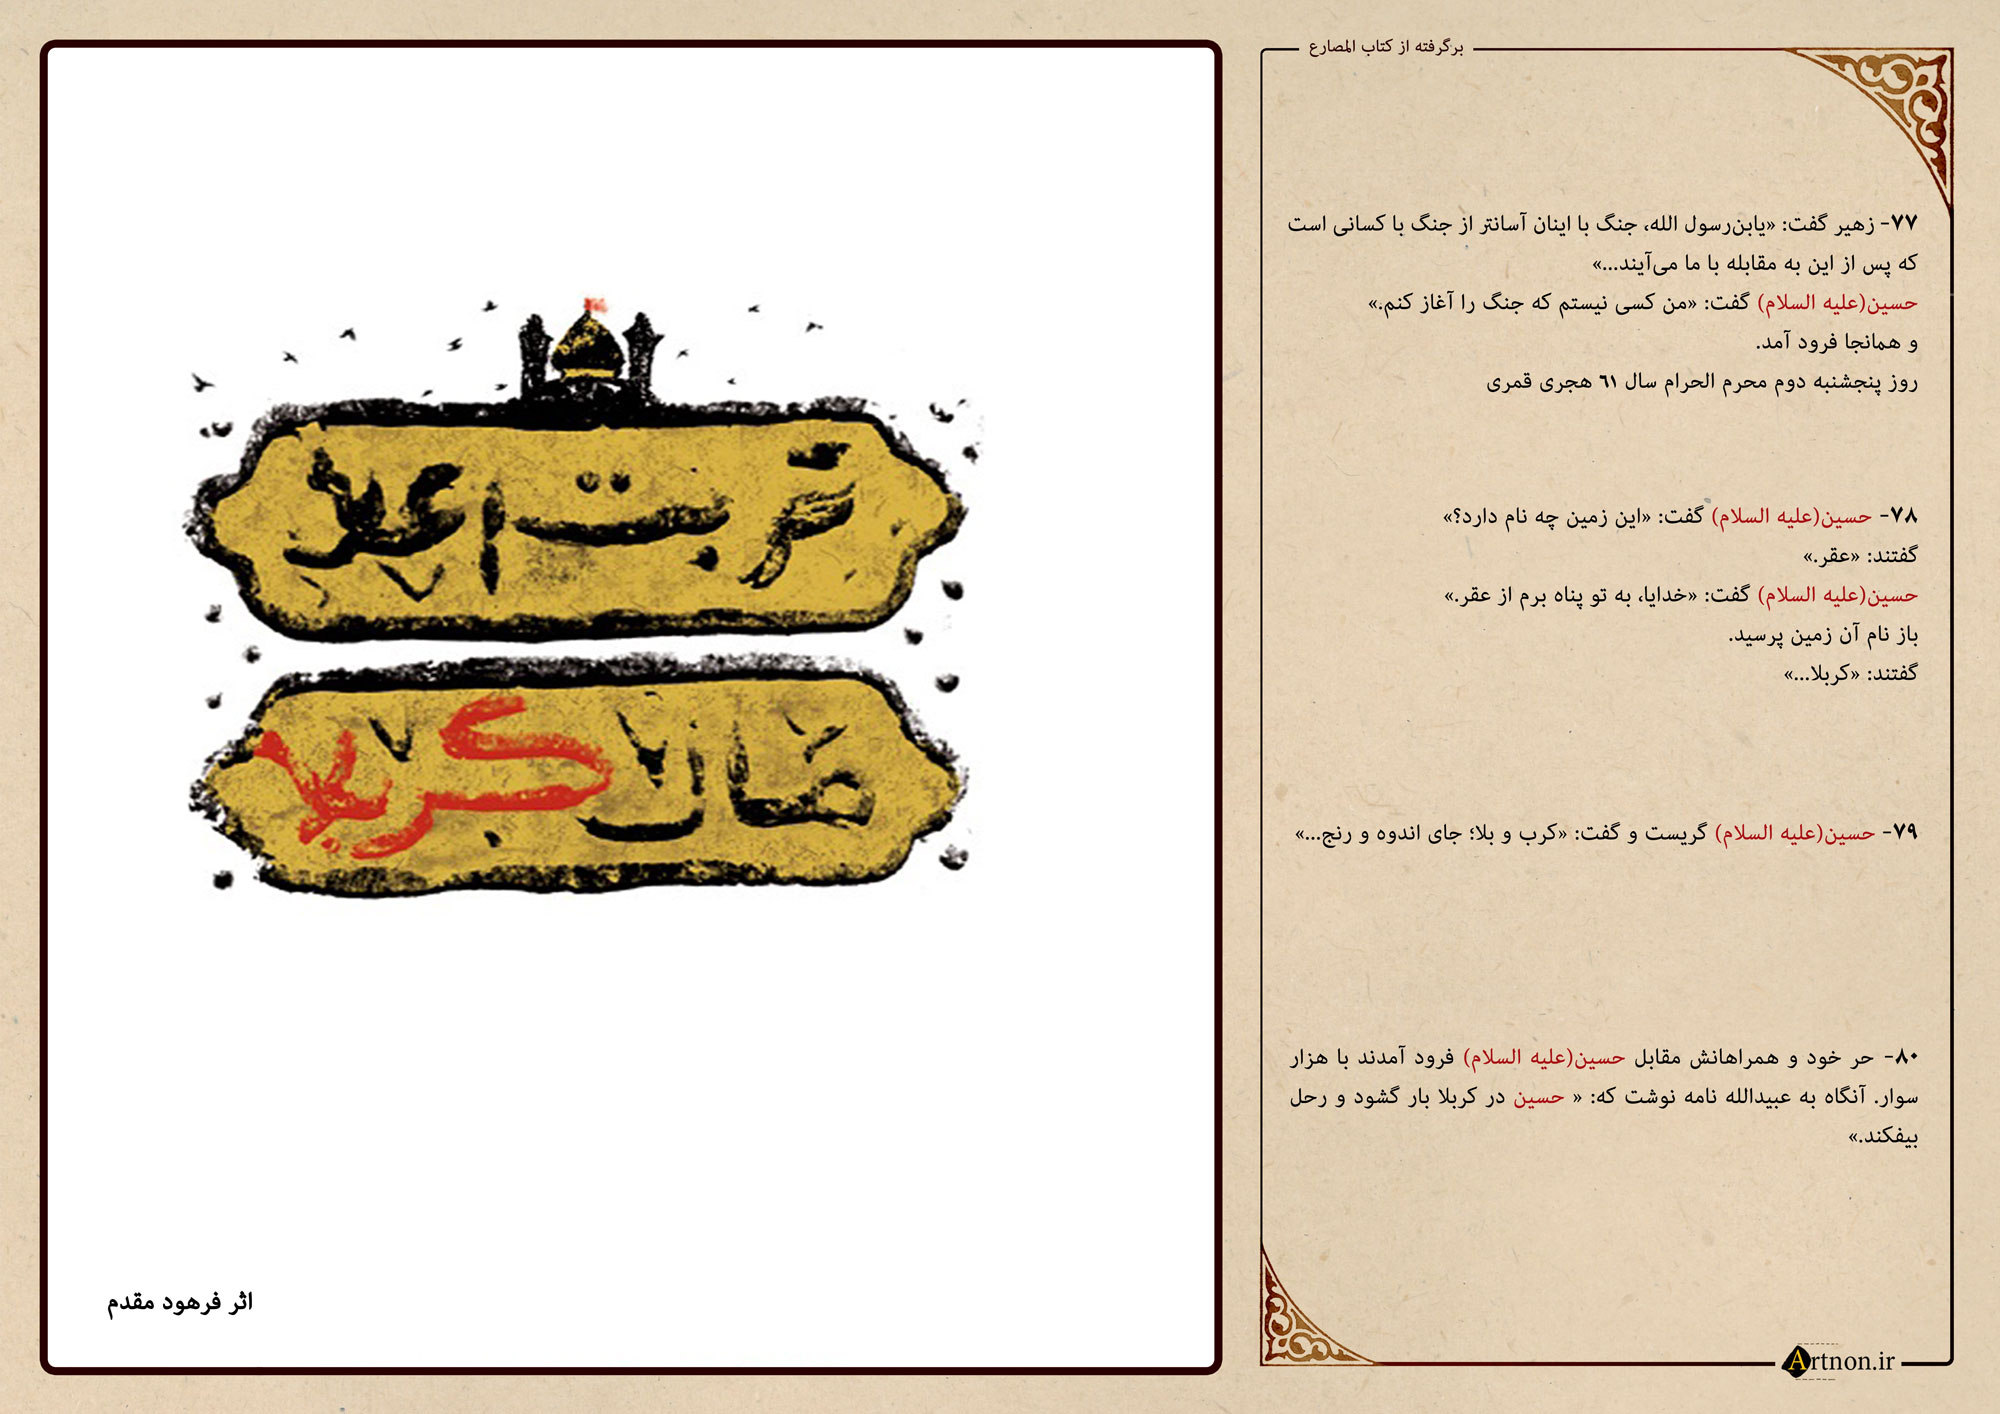 برگرفته از کتاب المصارع
۷۷- زهیر گفت: «یابن‌رسول الله، جنگ با اینان آسانتر از جنگ با کسانی است
که پس از این به مقابله با ما می‌آیند...»
حسین(علیه السلام) گفت: «من کسی نیستم که جنگ را آغاز کنم.»
و همانجا فرود آمد.
روز پنجشنبه دوم محرم الحرام سال ٦١ هجری قمری
۷۸- حسین(علیه السلام) گفت: «این زمین چه نام دارد؟»
گفتند: «عقر.»
حسین(علیه السلام) گفت: «خدایا، به تو پناه برم از عقر.»
باز نام آن زمین پرسید.
گفتند: «کربلا...»
۷۹- حسین(علیه السلام) گریست و گفت: «کرب و بلا؛ جای اندوه و رنج...»
۸۰- حر خود و همراهانش مقابل حسین(علیه السلام) فرود آمدند با هزار
سوار. آنگاه به عبیدالله نامه نوشت که: « حسین در کربلا بار گشود و رحل
بیفکند.»
Artnon.ir
تربت اعلا
کربلا
اثر فرهود مقدم